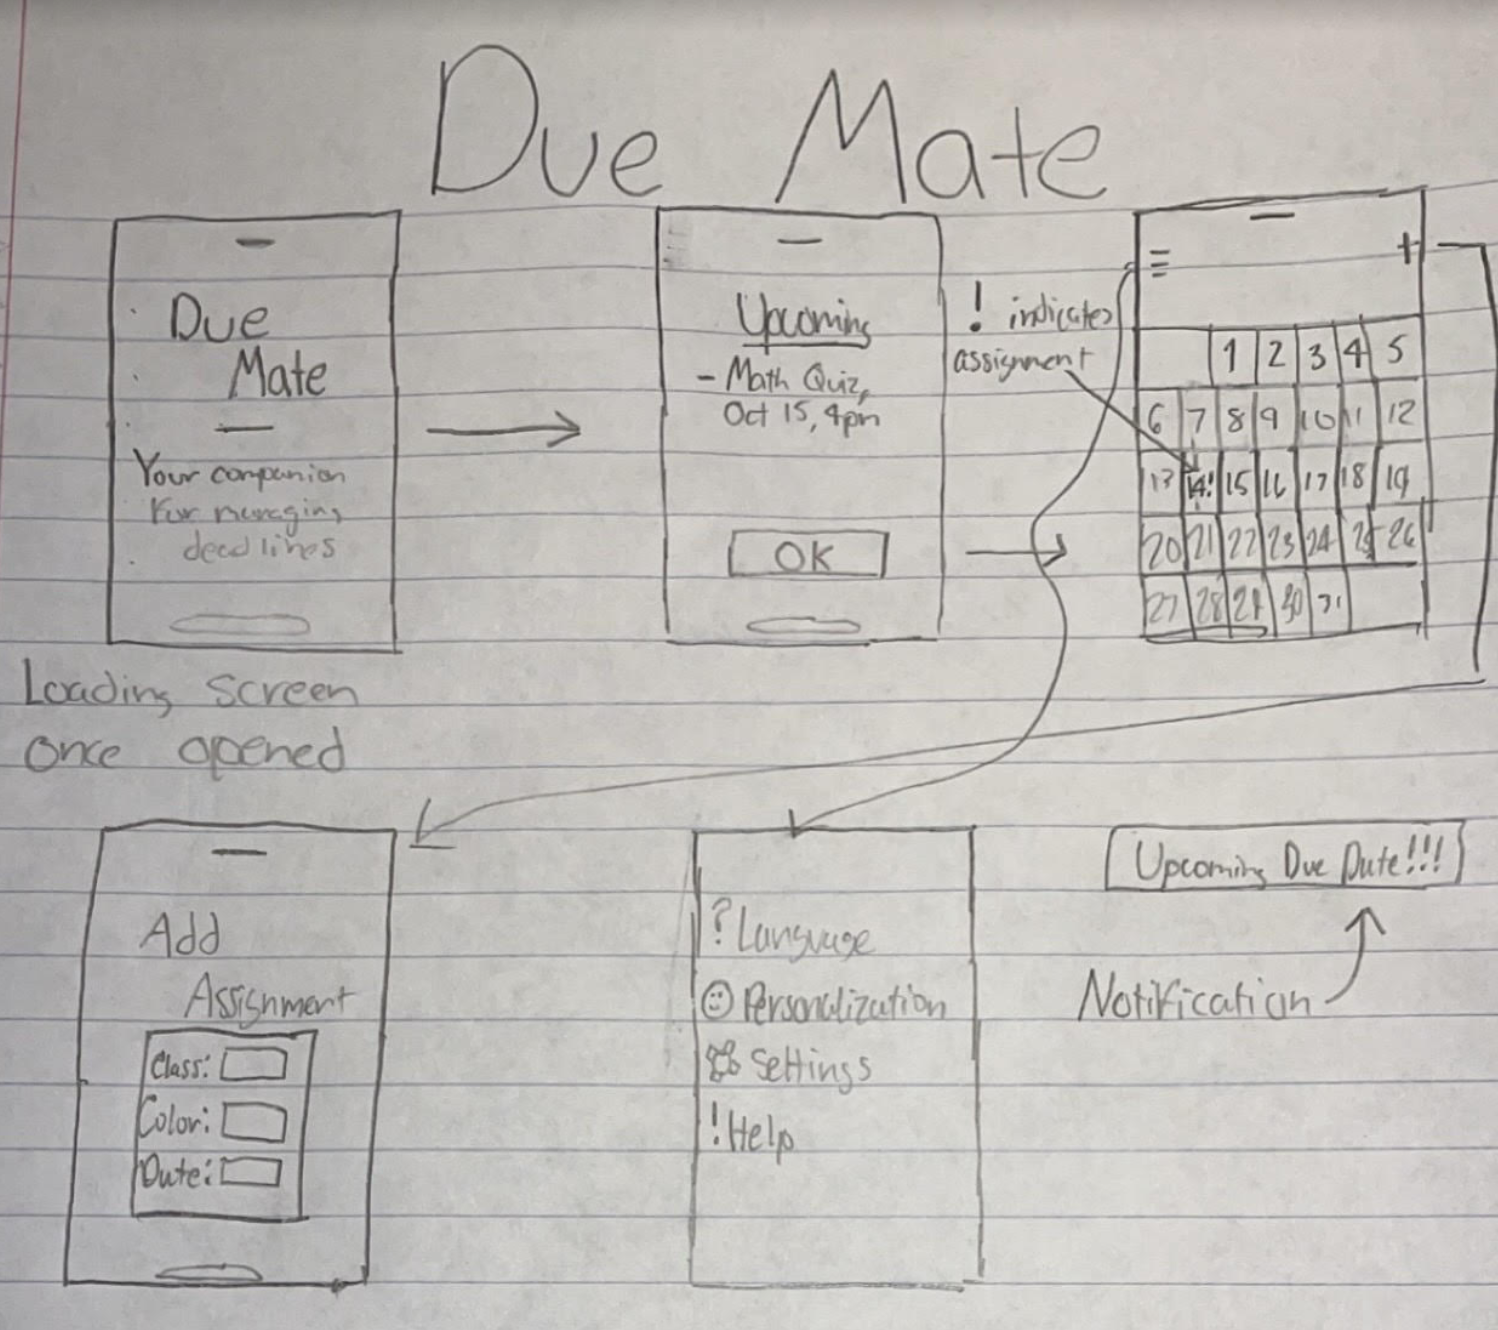 Due Mate
Due
Mate
Your companion
For managing
deadlines
Loading screen
once opened
Upcoming
- Math Quiz,
Oct 15, 4pm
OK
! indicates
assignment
+
1 2 3 4 5
6 7 8 9 10 11 12
13 14! 15 16 17 18 19
20 21 22 23 24 25 26
27 28 29 30 31
Add
Assignment
Class:
Color:
Date:
? Language
Personalization
Settings
! Help
Upcoming Due Date!!!
Notification